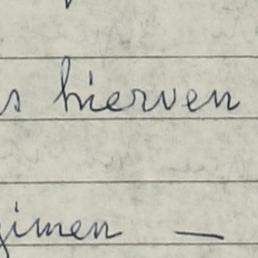 s hierven
gimen —